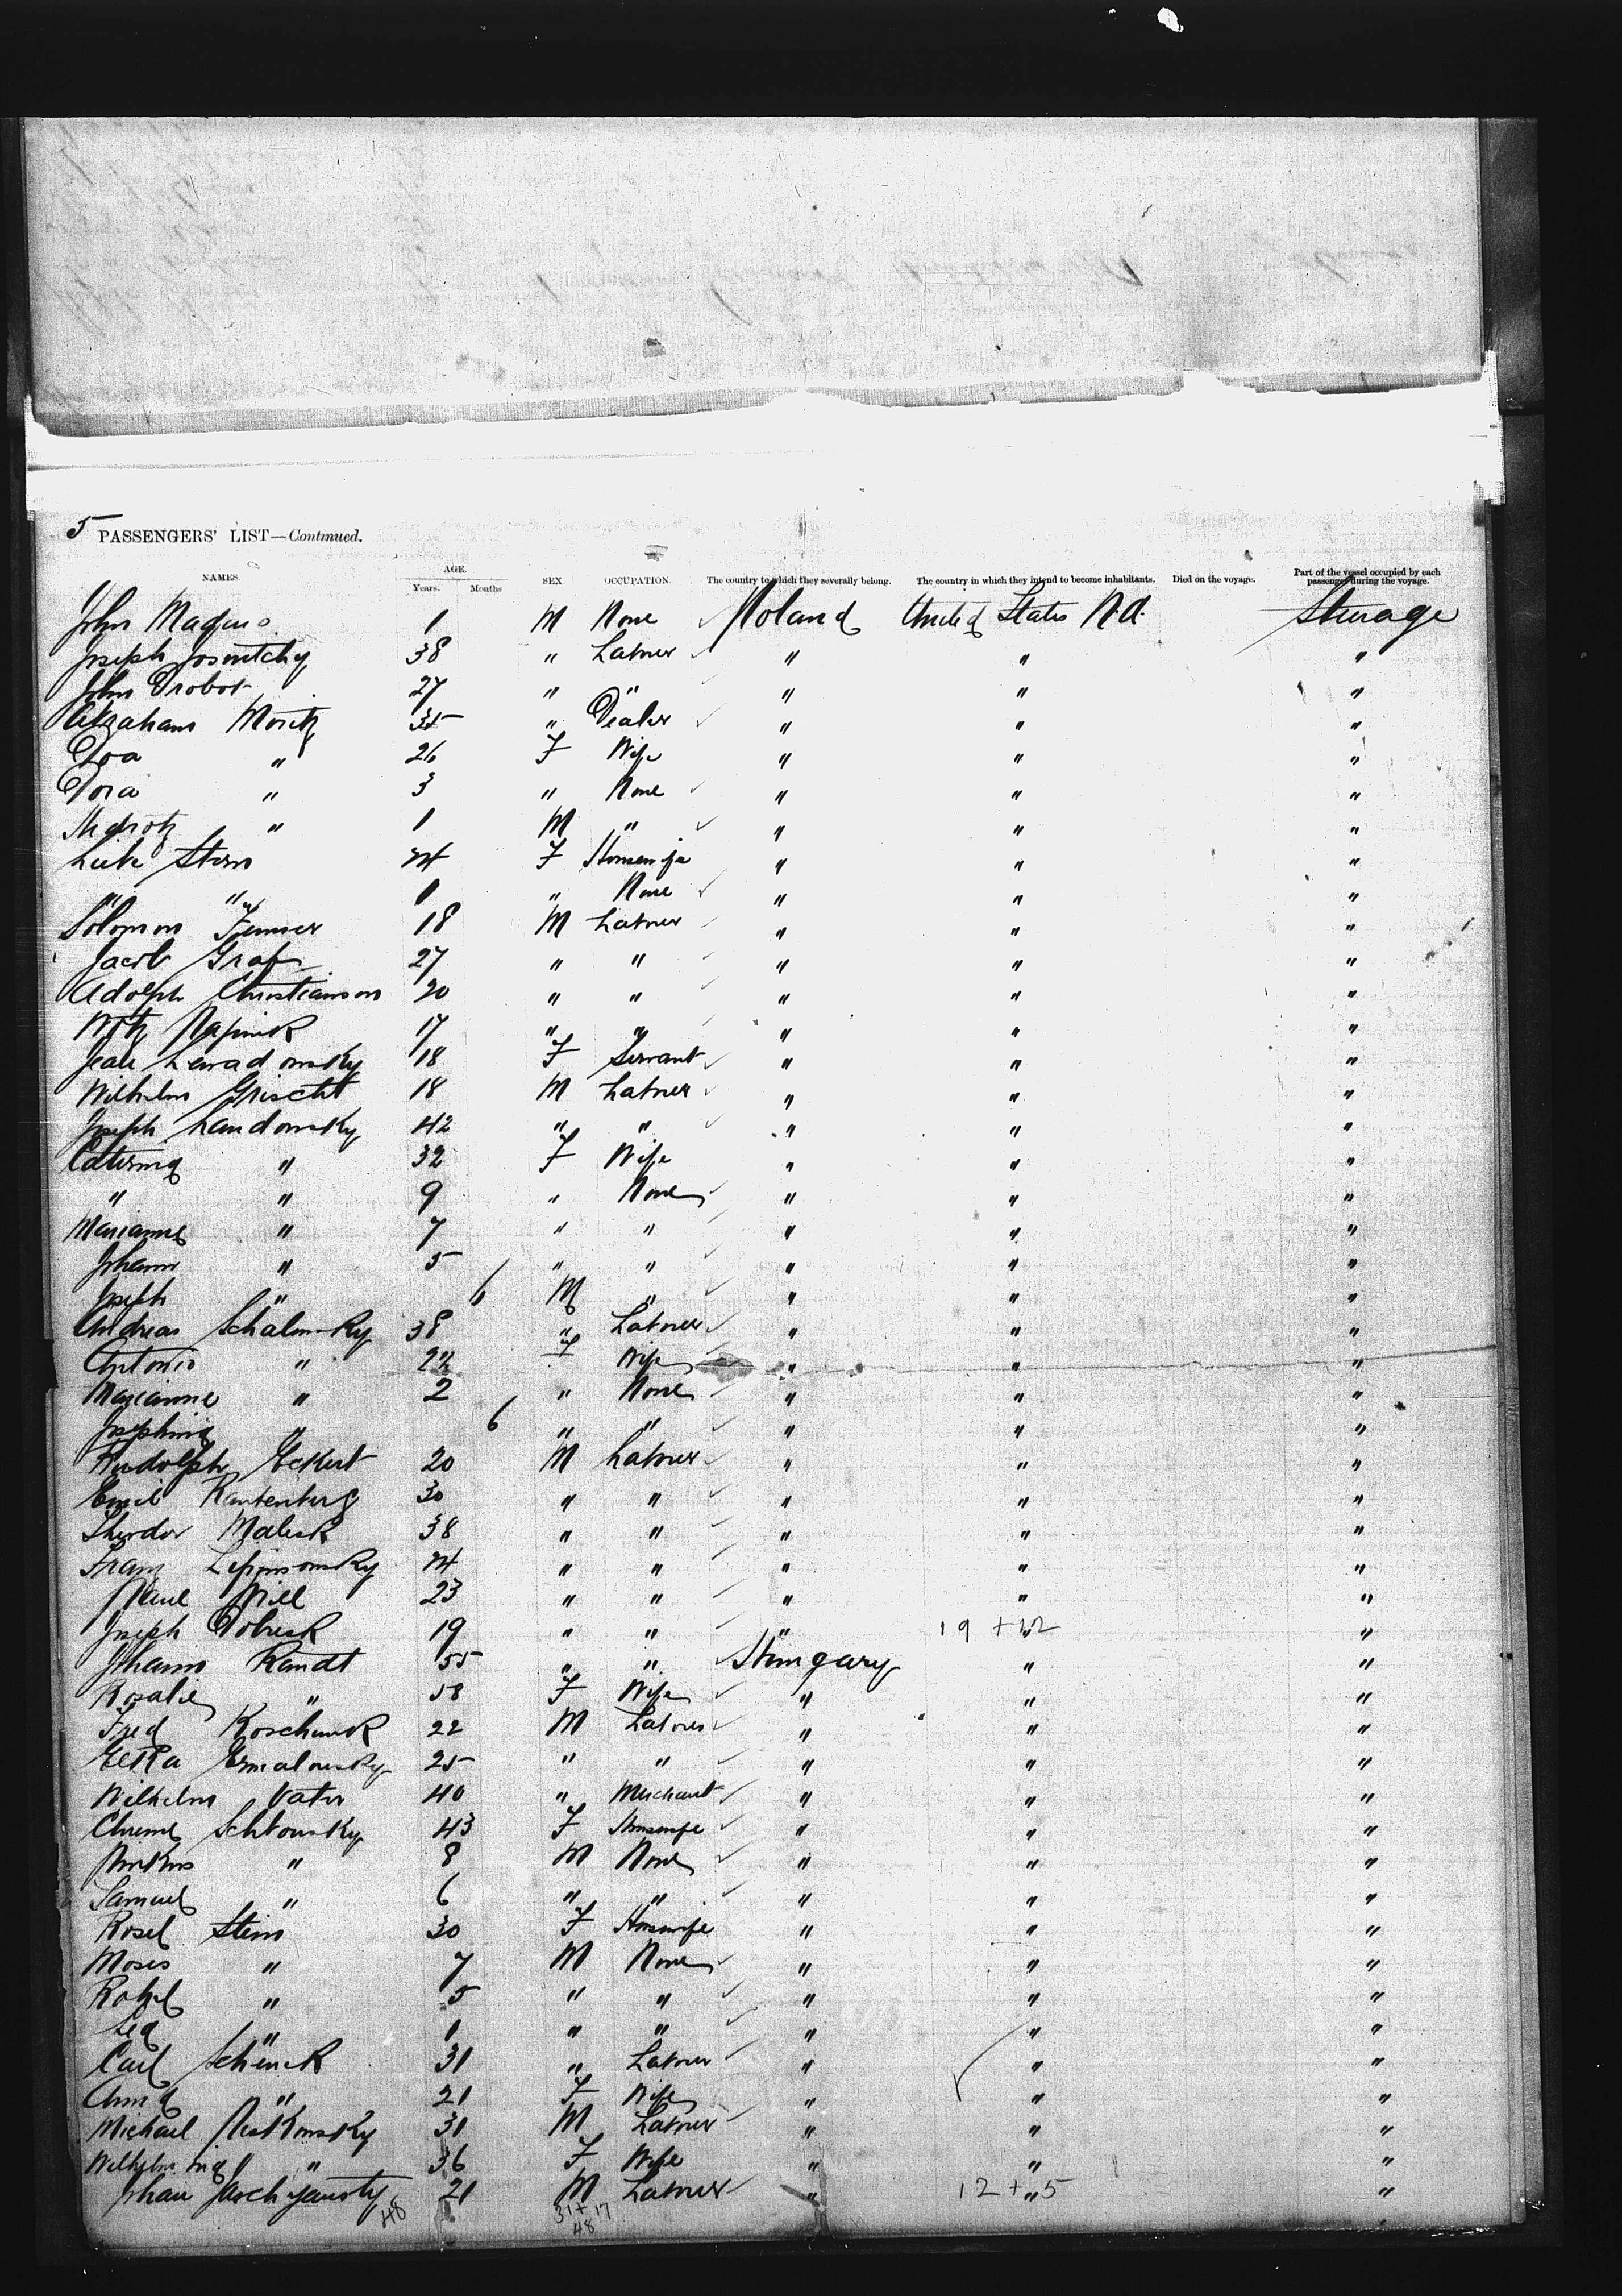 5 PASSENGERS' LIST—Continued.
NAMES. AGE. Years. Months SEX. OCCUPATION. The country to which they severally belong. The country in which they intend to become inhabitants. Died on the voyage. Part of the vessel occupied by each passenger during the voyage.
John Magnus 1 M None Poland United States N.A. Steerage
Joseph 38 " Laborer " " "
John Drobot 27 " " " " "
Abraham Moritz 35 " Dealer " " "
" 26 F Wife " " "
Dora " 3 " None " " "
" 1 M " " " "
Stern 24 F Housewife " " "
" " 1 " None " " "
Solomon 18 M Laborer " " "
Jacob Graf 27 " " " " "
Adolph Christianson 20 " " " " "
17 " " " " "
18 F Servant " " "
Wilhelm Grischt 18 M Laborer " " "
Joseph Landowsky 42 " " " " "
Caterina " 32 F Wife " " "
" " 9 " None " " "
Marianne " 7 " " " " "
Johann " 5 " " " " "
Joseph " 6 M " " " "
Andreas Schalmsky 38 " Laborer " " "
Antonio " 24 F Wife " " "
Marianne " 2 " None " " "
Josephina " 6 " " " " "
Rudolph Eckert 20 M Laborer " " "
Emil Rautenberg 30 " " " " "
Theodor Malesk 38 " " " " "
Franz 24 " " " " "
Paul Will 23 " " " " "
Joseph Dobresk 19 " " " 19 + 12 " "
Johann Randt 55 " " Hungary " "
Rosalie " 58 F Wife " " "
Fred Koschinck 22 M Laborer " " "
Elka Ermalowsky 25 " " " " "
Wilhelm Vater 40 " Merchant " " "
Schtowsky 43 F Housewife " " "
" 8 M None " " "
Samuel " 6 " " " " "
Rosel Stein 30 F Housewife " " "
Moses " 7 M None " " "
Rahel " 5 " " " " "
Lea " 1 " " " " "
Carl Schenck 31 " Laborer " " "
Anna " 21 F Wife " " "
Michael 31 M Laborer " " "
Wilhelmina " 36 F Wife " " "
Johan 21 M Laborer " 12 + 5 " "
48 31 + 17
48